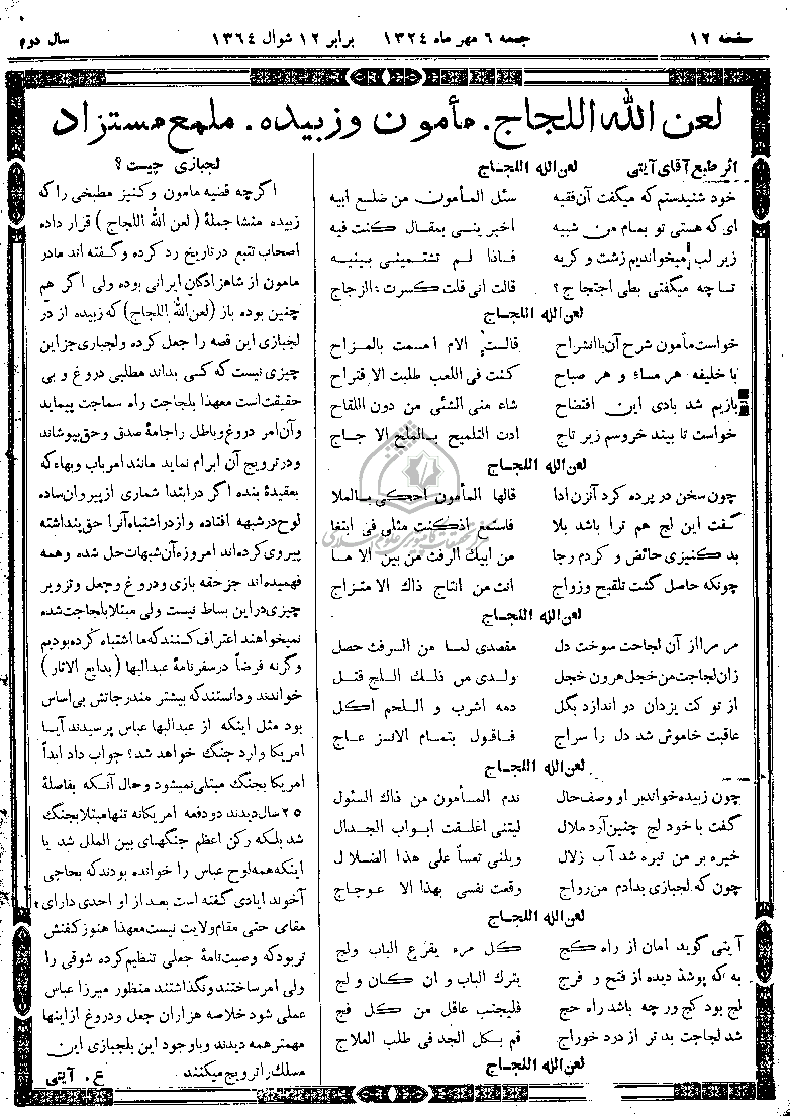 صفحه ۱۲ جمعه ۶ مهر ماه ۱۳۲۴ برابر ۱۲ شوال ۱۳۶۴ سال دوم
لعن الله اللجاج . مأمون و زبیده . ملمع مستزاد
اثر طبع آقای آیتی لعن الله اللجاج
خود شنیدستم که میگفت آن فقیه سئل المأمون من ضلع ابیه
ای که هستی تو بمام من شبیه اخبرینی بمقال کنت فیه
زیر لب میخواندیم زشت و کریه فاذا لم تشتمینی ببنیه
تا چه میگفتی بطی احتجاج ؟ قالت انی قلت کسرت الزجاج
لعن الله اللجاج
خواست مأمون شرح آن باانشراح قالت الام اهسمت بالمزاح
با خلیفه هر مساء و هر صباح کنت فی اللعب طلبت الاقتراح
بازیم شد بادی این افتضاح شاء منی الشئی من دون اللقاح
خواست تا بیند خروسم زیر تاج ادت التلمیح بالملح الاجاج
لعن الله اللجاج
چون سخن در پرده کرد آنزن ادا قالها المأمون احکی بالملا
گفت این لج هم ترا باشد بلا فاستمع اذ کنت مثلی فی ابتغا
بد کنیزی حائض و کردم رجا من ابیک الرفث من بین الاما
چونکه حاصل گشت تلقیح و زواج انت من انتاج ذاک الامتزاج
لعن الله اللجاج
مر مرا از آن لجاجت سوخت دل مقصدی لما من الرفث حصل
زان لجاجت من خجل هرون خجل ولدی من ذلک اللج قتل
از تو کت یزدان در اندازد بگل دمه اشرب و اللحم اکل
عاقبت خاموش شد دل را سراج فاقول بتمام الانزعاج
لعن الله اللجاج
چون زبیده خواند بر او وصف حال ندم المأمون من ذاک السئول
گفت با خود لج چنین آرد ملال لیتنی اغلقت ابواب الجدال
خیره بر من تیره شد آب زلال ویلنی تعساً علی هذا الضلال
چون که لجبازی بدادم من رواج وقعت نفسی بهذا الاعوجاج
لعن الله اللجاج
آیتی گوید امان از راه کج کل مره یقرع الباب ولج
به که پوشد دیده از فتح و فرج یترک الباب و ان کان ولج
لج بود کج ور چه باشد راه حج فلیجتنب عاقل من کل فج
شد لجاجت بدتر از درد خوراج قم بکل الجد فی طلب العلاج
لعن الله اللجاج
لجبازی چیست ؟
اگرچه قضیه مامون و کنیز مطبخی را که
زبیده منشا جملهٔ ( لعن الله اللجاج ) قرار داده
اصحاب تتبع در تاریخ رد کرده و گفته اند مادر
مامون از شاهزادگان ایرانی بوده ولی اگر هم
چنین بوده باز (لعن الله اللجاج) که زبیده از در
لجبازی این قصه را جعل کرده و لجبازی جز این
چیزی نیست که کسی بداند مطلبی دروغ و بی
حقیقت است معهذا بلجاجت راه سماجت پیماید
و آن امر دروغ و باطل را جامهٔ صدق و حق بپوشاند
و در ترویج آن ابرام نماید مانند امر باب و بهاء که
بعقیدهٔ بنده اگر در ابتدا شماری از پیروان ساده
لوح در شبهه افتاده و از در اشتباه آنرا حق پنداشته
پیروی کرده اند امروزه آن شبهات حل شده و همه
فهمیده اند جز حقه بازی و دروغ و جعل و تزویر
چیزی در این بساط نیست ولی مبتلا بلجاجت شده
نمیخواهند اعتراف کنند که ما اشتباه کرده بودیم
و گرنه فرضاً در سفرنامهٔ عبدالبها ( بدایع الاثار )
خواندند و دانستند که بیشتر مندرجاتش بی اساس
بود مثل اینکه از عبدالبها عباس پرسیدند آیا
امریکا وارد جنگ خواهد شد؟ جواب داد ابداً
امریکا بجنگ مبتلی نمیشود و حال آنکه بفاصلهٔ
۲۵ سال دیدند دو دفعه امریکا نه تنها مبتلا بجنگ
شد بلکه رکن اعظم جنگهای بین الملل شد یا
اینکه همه لوح عباس را خوانده بودند که بحاجی
آخوند ایادی گفته است بعد از او احدی دارای
مقامی حتی مقام ولایت نیست معهذا هنوز کفنش
تر بود که وصیت نامهٔ جعلی تنظیم کرده شوقی را
ولی امر ساختند و نگذاشتند منظور میرزا عباس
عملی شود خلاصه هزاران جعل و دروغ از اینها
مهمتر همه دیدند و با وجود این بلجبازی این
مسلک را ترویج میکنند ع . آیتی